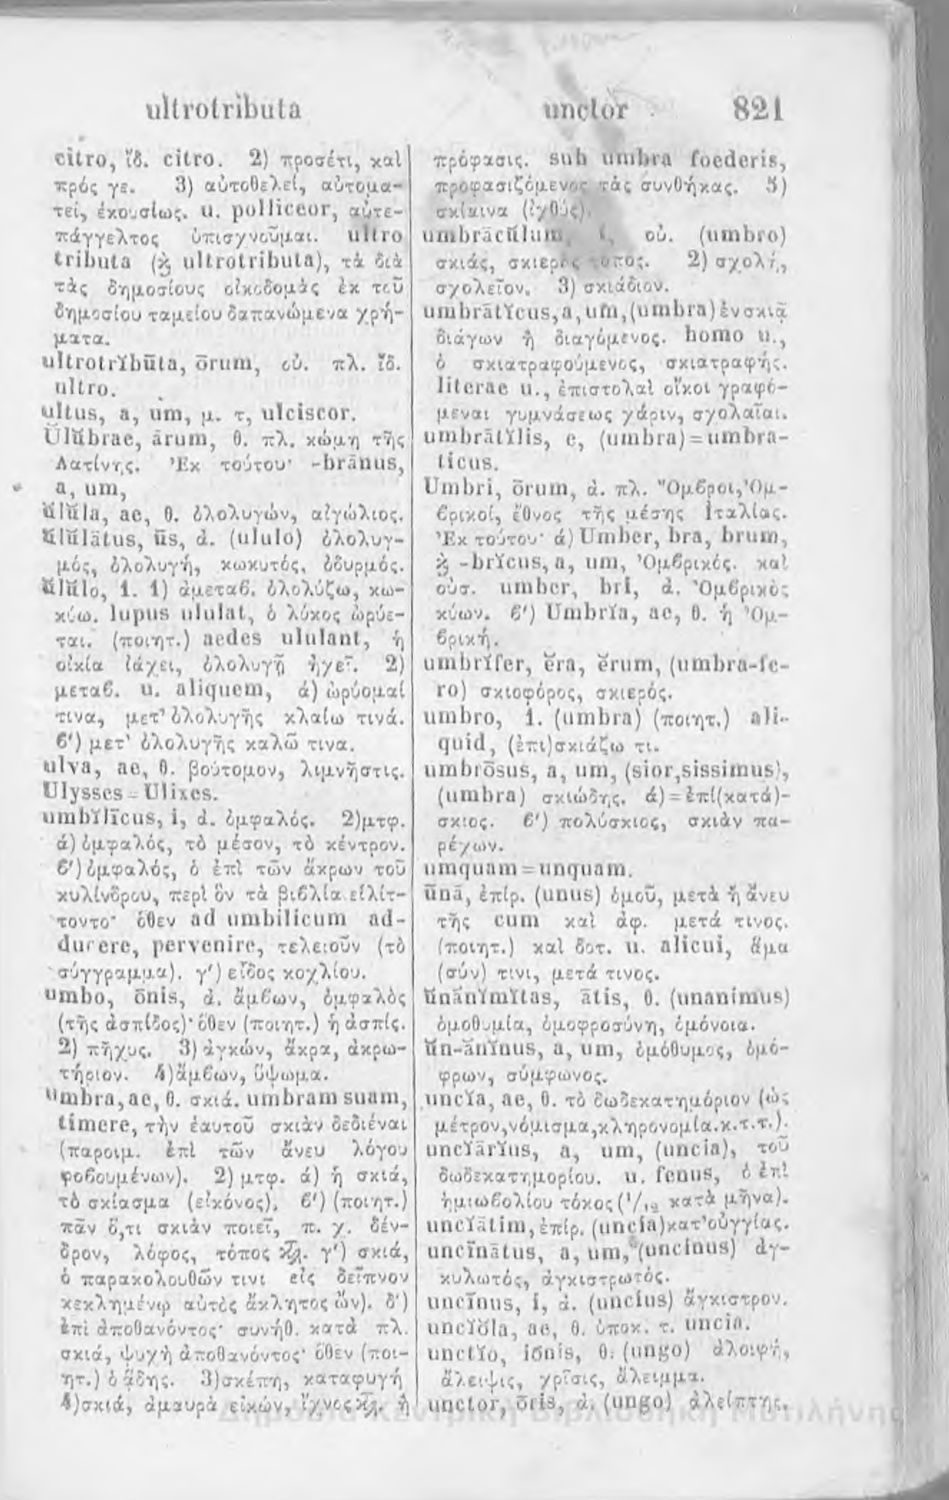 ultrotributa
unctor
821
citro, ἴδ. citro. 2) προσέτι, καὶ
πρός γε. 3) αὐτοθελεί, αὐτομα-
τεί, ἑκουσίως. u. polliceor, αὐτε-
πάγγελτος ὑπισχνοῦμαι. ultro
tributa (ϗ ultrotributa), τὰ διὰ
τὰς δημοσίους οἰκοδομὰς ἐκ τοῦ
δημοσίου ταμείου δαπανώμενα χρή-
ματα.
ultrotrĭbūta, ōrum, οὐ. πλ. ἴδ.
ultro.
ultus, a, um, μ. τ, ulciscor.
Ŭlŭbrae, ārum, θ. πλ. κώμη τῆς
Λατίνης. Ἐκ τούτου· -brānus,
a, um,
ŭlŭla, ae, θ. ὀλολυγών, αἰγώλιος.
ŭlŭlātus, ūs, ἀ. (ululo) ὀλολυγ-
μός, ὀλολυγή, κωκυτός, ὀδυρμός.
ŭlŭlo, 1. 1) ἀμεταβ. ὀλολύζω, κω-
κύω. lupus ululat, ὁ λύκος ὠρύε-
ται. (ποιητ.) aedes ululant, ἡ
οἰκία ἰάχει, ὀλολυγῇ ἠχεῖ. 2)
μεταβ. u. aliquem, ά) ὠρύομαί
τινα, μετ' ὀλολυγῆς κλαίω τινά.
β') μετ' ὀλολυγῆς καλῶ τινα.
ulva, ae, θ. βούτομον, λιμνῆστις.
Ulysses = Ulixes.
umbĭlīcus, i, ἀ. ὀμφαλός. 2)μτφ.
ά) ὀμφαλός, τὸ μέσον, τὸ κέντρον.
β') ὀμφαλός, ὁ ἐπὶ τῶν ἄκρων τοῦ
κυλίνδρου, περὶ ὃν τὰ βιβλία εἱλίτ-
τοντο· ὅθεν ad umbilicum ad-
ducere, pervenire, τελειοῦν (τὸ
σύγγραμμα). γ') εἶδος κοχλίου.
umbo, ōnis, ἀ. ἄμβων, ὀμφαλὸς
(τῆς ἀσπίδος)· ὅθεν (ποιητ.) ἡ ἀσπίς.
2) πῆχυς. 3) ἀγκών, ἄκρα, ἀκρω-
τήριον. 4)ἄμβων, ὕψωμα.
umbra, ae, θ. σκιά. umbram suam,
timere, τὴν ἑαυτοῦ σκιὰν δεδιέναι
(παροιμ. ἐπὶ τῶν ἄνευ λόγου
φοβουμένων). 2) μτφ. ά) ἡ σκιά,
τὸ σκίασμα (εἰκόνος). β') (ποιητ.)
πᾶν ὅ,τι σκιὰν ποιεῖ, π. χ. δέν-
δρον, λόφος, τόπος κλ. γ') σκιά,
ὁ παρακολουθῶν τινι εἰς δεῖπνον
κεκλημένῳ αὐτὸς ἄκλητος ὤν). δ')
ἐπὶ ἀποθανόντος· συνήθ. κατὰ πλ.
σκιά, ψυχὴ ἀποθανόντος· ὅθεν (ποι-
ητ.) ὁ ᾅδης. 3)σκέπη, καταφυγή
4)σκιά, ἀμαυρὰ εἰκών, ἴχνος κλ. ἡ
πρόφασις. sub umbra foederis,
προφασιζόμενος τὰς συνθήκας. 5)
σκίαινα (ἰχθύς).
umbrācŭlum, i, οὐ. (umbro)
σκιάς, σκιερὸς τόπος. 2) σχολή,
σχολεῖον. 3) σκιάδιον.
umbrātĭcus, a, um, (umbra) ἐν σκιᾷ
διάγων ἢ διαγόμενος. homo u.,
ὁ σκιατραφούμενος, σκιατραφής.
literae u., ἐπιστολαὶ οἴκοι γραφό-
μεναι γυμνάσεως χάριν, σχολαῖαι.
umbrātĭlis, e, (umbra) = umbra-
ticus.
Umbri, ōrum, ἀ. πλ. Ὄμβροι, Ὀμ-
βρικοί, ἔθνος τῆς μέσης Ἰταλίας.
Ἐκ τούτου· ά) Umber, bra, brum,
ϗ -brĭcus, a, um, Ὀμβρικός. καὶ
οὐσ. umber, bri, ἀ. Ὀμβρικὸς
κύων. β') Umbrĭa, ae, θ. ἡ Ὀμ-
βρική.
umbrĭfer, ĕra, ĕrum, (umbra-fe-
ro) σκιοφόρος, σκιερός.
umbro, 1. (umbra) (ποιητ.) ali-
quid, (ἐπι)σκιάζω τι.
umbrōsus, a, um, (sior, sissimus),
(umbra) σκιώδης. ά) = ἐπί(κατά)-
σκιος. β') πολύσκιος, σκιὰν πα-
ρέχων.
umquam = unquam.
ūnā, ἐπίρ. (unus) ὁμοῦ, μετὰ ἢ ἄνευ
τῆς cum καὶ ἀφ. μετά τινος.
(ποιητ.) καὶ δοτ. u. alicui, ἅμα
(σύν) τινι, μετά τινος.
ūnănĭmĭtas, ātis, θ. (unanimus)
ὁμοθυμία, ὁμοφροσύνη, ὁμόνοια.
ūn-ănĭnus, a, um, ὁμόθυμος, ὁμό-
φρων, σύμφωνος.
uncĭa, ae, θ. τὸ δωδεκατημόριον (ὡς
μέτρον, νόμισμα, κληρονομία. κ.τ.τ.).
uncĭārĭus, a, um, (uncia), τοῦ
δωδεκατημορίου. u. fenus, ὁ ἐπὶ
ἡμιωβολίου τόκος (1/12 κατὰ μῆνα).
uncĭātim, ἐπίρ. (uncia) κατ' οὐγγίας.
uncīnātus, a, um, (uncinus) ἀγ-
κυλωτός, ἀγκιστρωτός.
uncīnus, i, ἀ. (uncius) ἄγκιστρον.
uncĭŏla, ae, θ. ὑποκ. τ. uncia.
unctĭo, iōnis, θ. (ungo) ἀλοιφή,
ἄλειψις, χρῖσις, ἄλειμμα.
unctor, ōris, ἀ. (ungo) ἀλείπτης.
Δημόσια Κεντρική Βιβλιοθήκη Μυτιλήνης